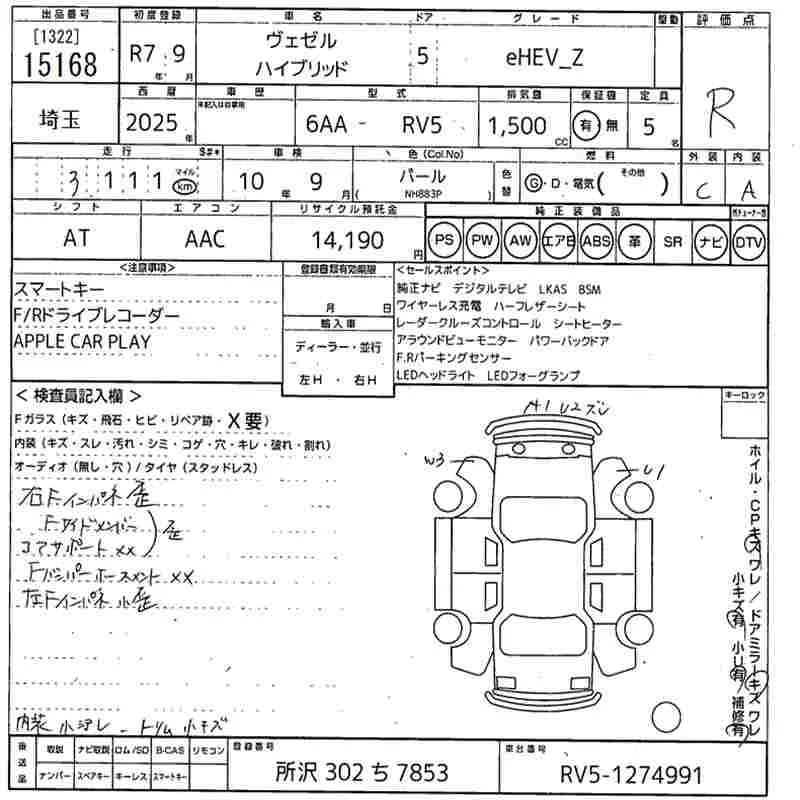 出品番号 初度登録 車名 ドア グレード 駆動 評価点
[1322]
15168 R7 年 9 月 ヴェゼル ハイブリッド 5 eHEV_Z R
西暦 車歴 型式 排気量 保証機 定員
未記入は自家用
埼玉 2025 年 6AA - RV5 1,500 CC 有 無 5 名
走行 S#* 車検 色 (Col,No) 燃料 外装 内装
3 1 1 1 マイル km 10 年 9 月 パール ( NH883P ) 色替 G・D・電気 ( その他 ) C A
シフト エアコン リサイクル預託金 純正装備品
AT AAC 14,190 円 PS PW AW エアB ABS 革 SR ナビ DTV
<注意事項> 登録自税有効期限 <セールスポイント>
スマートキー
F/Rドライブレコーダー
APPLE CAR PLAY
月 日
輸入車
ディーラー・並行
左H ・ 右H
純正ナビ デジタルテレビ LKAS BSM
ワイヤーレス充電 ハーフレザーシート
レーダークルーズコントロール シートヒーター
アラウンドビューモニター パワーバックドア
F.Rパーキングセンサー
LEDヘッドライト LEDフォーグランプ
< 検査員記入欄 > キーロック
Fガラス (キズ・飛石・ヒビ・リペア跡・X要)
内装 (キズ・スレ・汚れ・シミ・コゲ・穴・キレ・破れ・割れ)
オーディオ (無し・穴) / タイヤ (スタッドレス)
右Fインパネ歪
Fサイドメンバー
コアサポート XX ) 歪
Fバンパーホースメント XX
左Fインパネ小歪
内装 小汚レ - トリム小キズ
A1 U2ズレ
W3
U1
ホイル・CPキズワレ/ドアミラーキズワレ
小キズ有 小U有 補修有
後送品 取説 ナビ取説 ロム/SD B-CAS リモコン 登録番号 車台番号
ナンバー スペアキー キーレス スマートキー 所沢 302 ち 7853 RV5-1274991